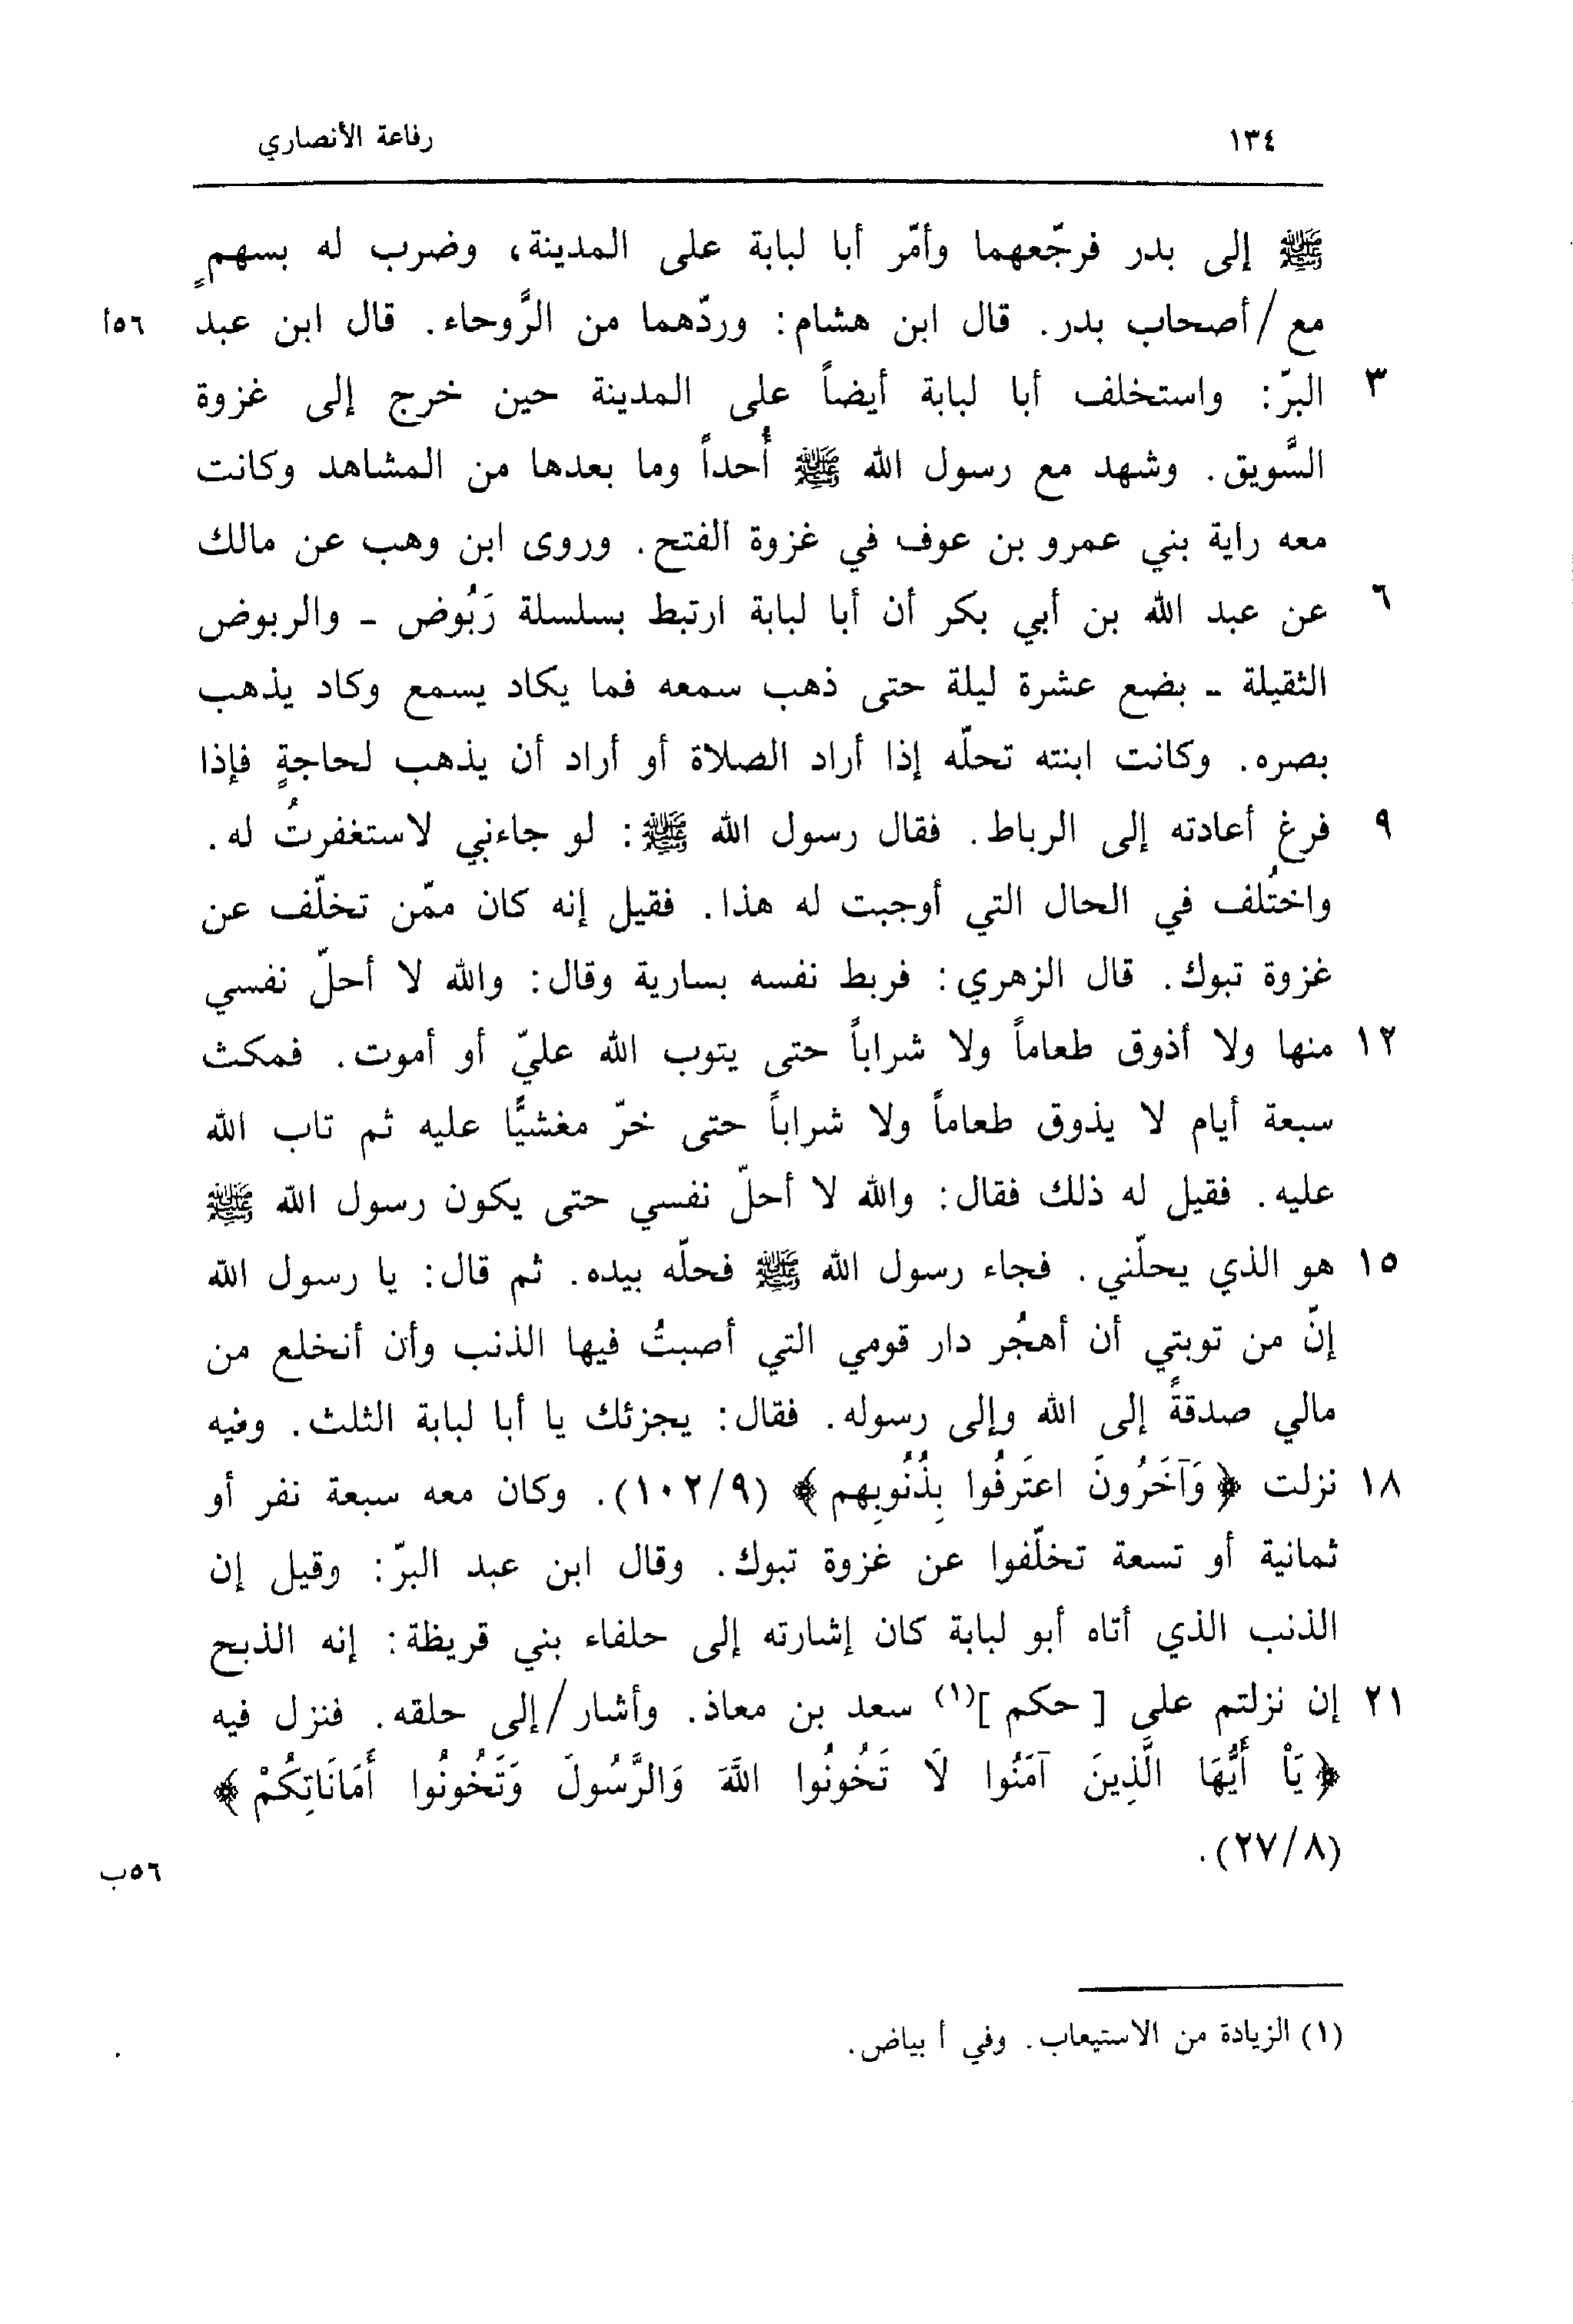 ١٣٤ رفاعة الأنصاري
ﷺ إلى بدر فرجّعهما وأمّر أبا لبابة على المدينة، وضرب له بسهمٍ
مع / أصحاب بدر. قال ابن هشام: وردّهما من الرَّوحاء. قال ابن عبد ٥٦أ
٣ البرّ: واستخلف أبا لبابة أيضاً على المدينة حين خرج إلى غزوة
السَّويق. وشهد مع رسول الله ﷺ أُحداً وما بعدها من المشاهد وكانت
معه راية بني عمرو بن عوف في غزوة الفتح. وروى ابن وهب عن مالك
٦ عن عبد الله بن أبي بكر أن أبا لبابة ارتبط بسلسلة رَبُوض - والربوض
الثقيلة - بضع عشرة ليلة حتى ذهب سمعه فما يكاد يسمع وكاد يذهب
بصره. وكانت ابنته تحلّه إذا أراد الصلاة أو أراد أن يذهب لحاجةٍ فإذا
٩ فرغ أعادته إلى الرباط. فقال رسول الله ﷺ: لو جاءني لاستغفرتُ له.
واختُلف في الحال التي أوجبت له هذا. فقيل إنه كان ممّن تخلّف عن
غزوة تبوك. قال الزهري: فربط نفسه بسارية وقال: والله لا أحلّ نفسي
١٢ منها ولا أذوق طعاماً ولا شراباً حتى يتوب الله عليّ أو أموت. فمكث
سبعة أيام لا يذوق طعاماً ولا شراباً حتى خرّ مغشيًّا عليه ثم تاب الله
عليه. فقيل له ذلك فقال: والله لا أحلّ نفسي حتى يكون رسول الله ﷺ
١٥ هو الذي يحلّني. فجاء رسول الله ﷺ فحلّه بيده. ثم قال: يا رسول الله
إنّ من توبتي أن أهجُر دار قومي التي أصبتُ فيها الذنب وأن أنخلع من
مالي صدقةً إلى الله وإلى رسوله. فقال: يجزئك يا أبا لبابة الثلث. وفيه
١٨ نزلت ﴿وَآخَرُونَ اعتَرفُوا بِذُنُوبِهم﴾ (١٠٢/٩). وكان معه سبعة نفر أو
ثمانية أو تسعة تخلّفوا عن غزوة تبوك. وقال ابن عبد البرّ: وقيل إن
الذنب الذي أتاه أبو لبابة كان إشارته إلى حلفاء بني قريظة: إنه الذبح
٢١ إن نزلتم على [حكم](١) سعد بن معاذ. وأشار / إلى حلقه. فنزل فيه
﴿يَاْ أَيُّهَا الَّذِينَ آمَنُوا لَا تَخُونُوا اللَّهَ وَالرَّسُولَ وَتَخُونُوا أَمَانَاتِكُمْ﴾
(٢٧/٨). ٥٦ب
(١) الزيادة من الاستيعاب. وفي أ بياض.